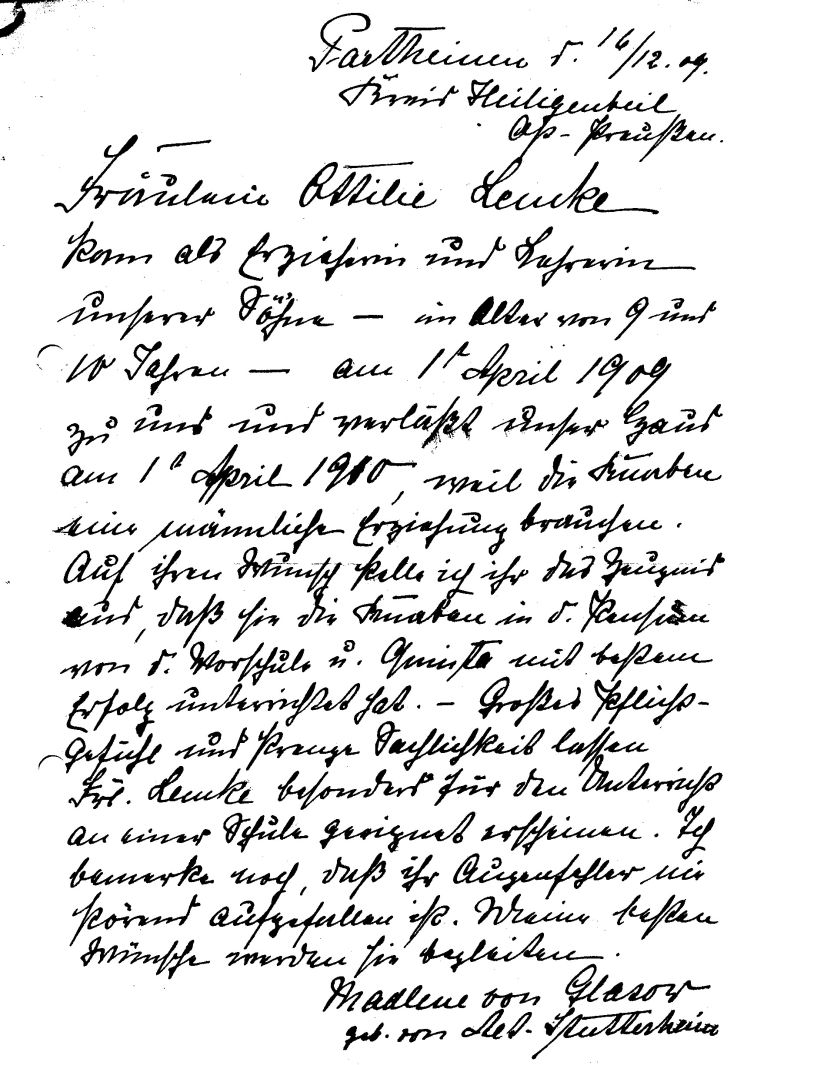 Partheinen d. 16/12.09.
Kreis Heiligenbeil
Ost-Preußen.
Fräulein Ottilie Lemke
kam als Erzieherin und Lehrerin
unserer Söhne — im Alter von 9 und
10 Jahren — am 1t April 1909
zu uns und verläßt unser Haus
am 1t April 1910, weil die Knaben
eine männliche Erziehung brauchen.
Auf ihren Wunsch stelle ich ihr das Zeugnis
aus, daß sie die Knaben in d. Pensum
von d. Vorschule u. Quinta mit bestem
Erfolg unterrichtet hat. – Großes Pflicht-
gefühl und strenge Sachlichkeit lassen
Frl. Lemke besonders für den Unterricht
an einer Schule geeignet erscheinen. Ich
bemerke noch, daß ihr Augenfehler nie
störend aufgefallen ist. Meine besten
Wünsche werden sie begleiten.
Madlene von Glasow
geb. von - Stutterheim